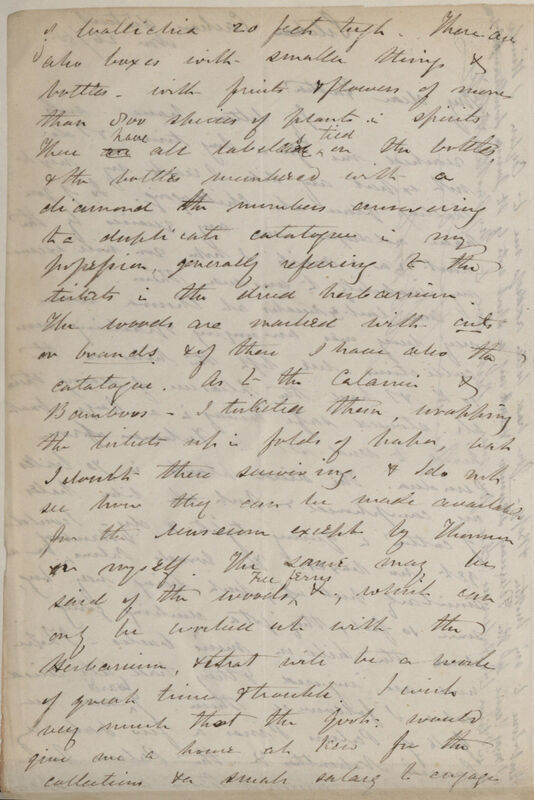 of Wallichia 20 feet high. There are
also boxes with smaller things &
bottles - with fruits & flowers of more
than 300 species of plants in spirits
These have all labels tied on the bottles,
& the bottles numbered with a
diamond the numbers answering
to a duplicate catalogue in my
possession, generally referring to the
tickets in the dried herbarium.
The woods are marked with cuts
or brands & of these I have also the
catalogue. As to the Calami &
Bamboos - I ticketed them, wrapping
the tickets up in folds of paper, but
I doubt these surviving, & I do not
see how they can be made available
for the Museum except by Thomson
or myself. The same may be
said of the woods, Tree ferns &c, which can
only be worked out with the
Herbarium, & that will be a work
of great time & trouble. I wish
very much that the Govt. would
give me a house at Kew for the
collections & a small salary to engage